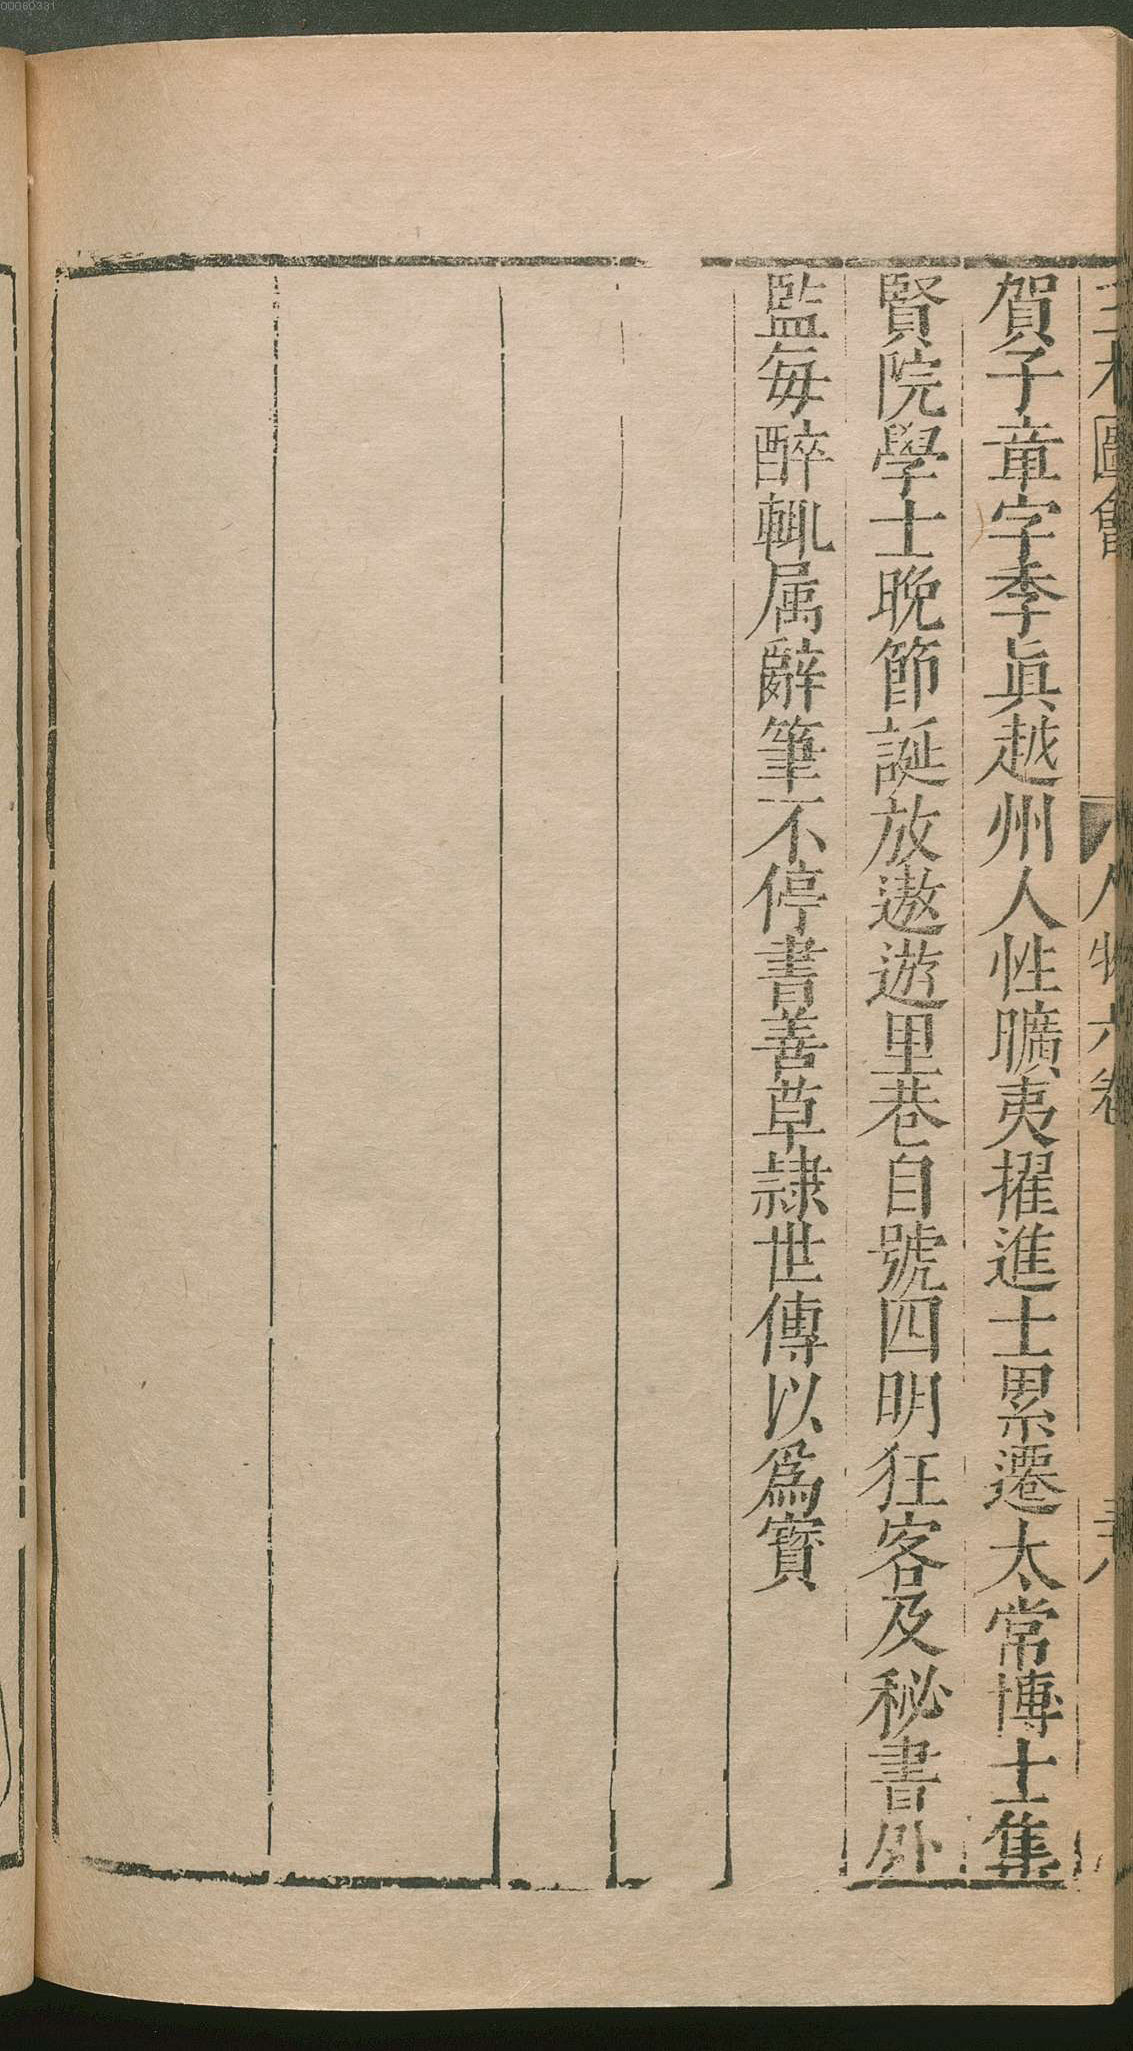 三才圖會 人物六卷
賀子章字季眞越州人性曠夷擢進士累遷太常博士集
賢院學士晚節誕放遨遊里巷自號四明狂客及秘書外
監每醉輒属辭筆不停書善草隷世傳以爲寶
00060331